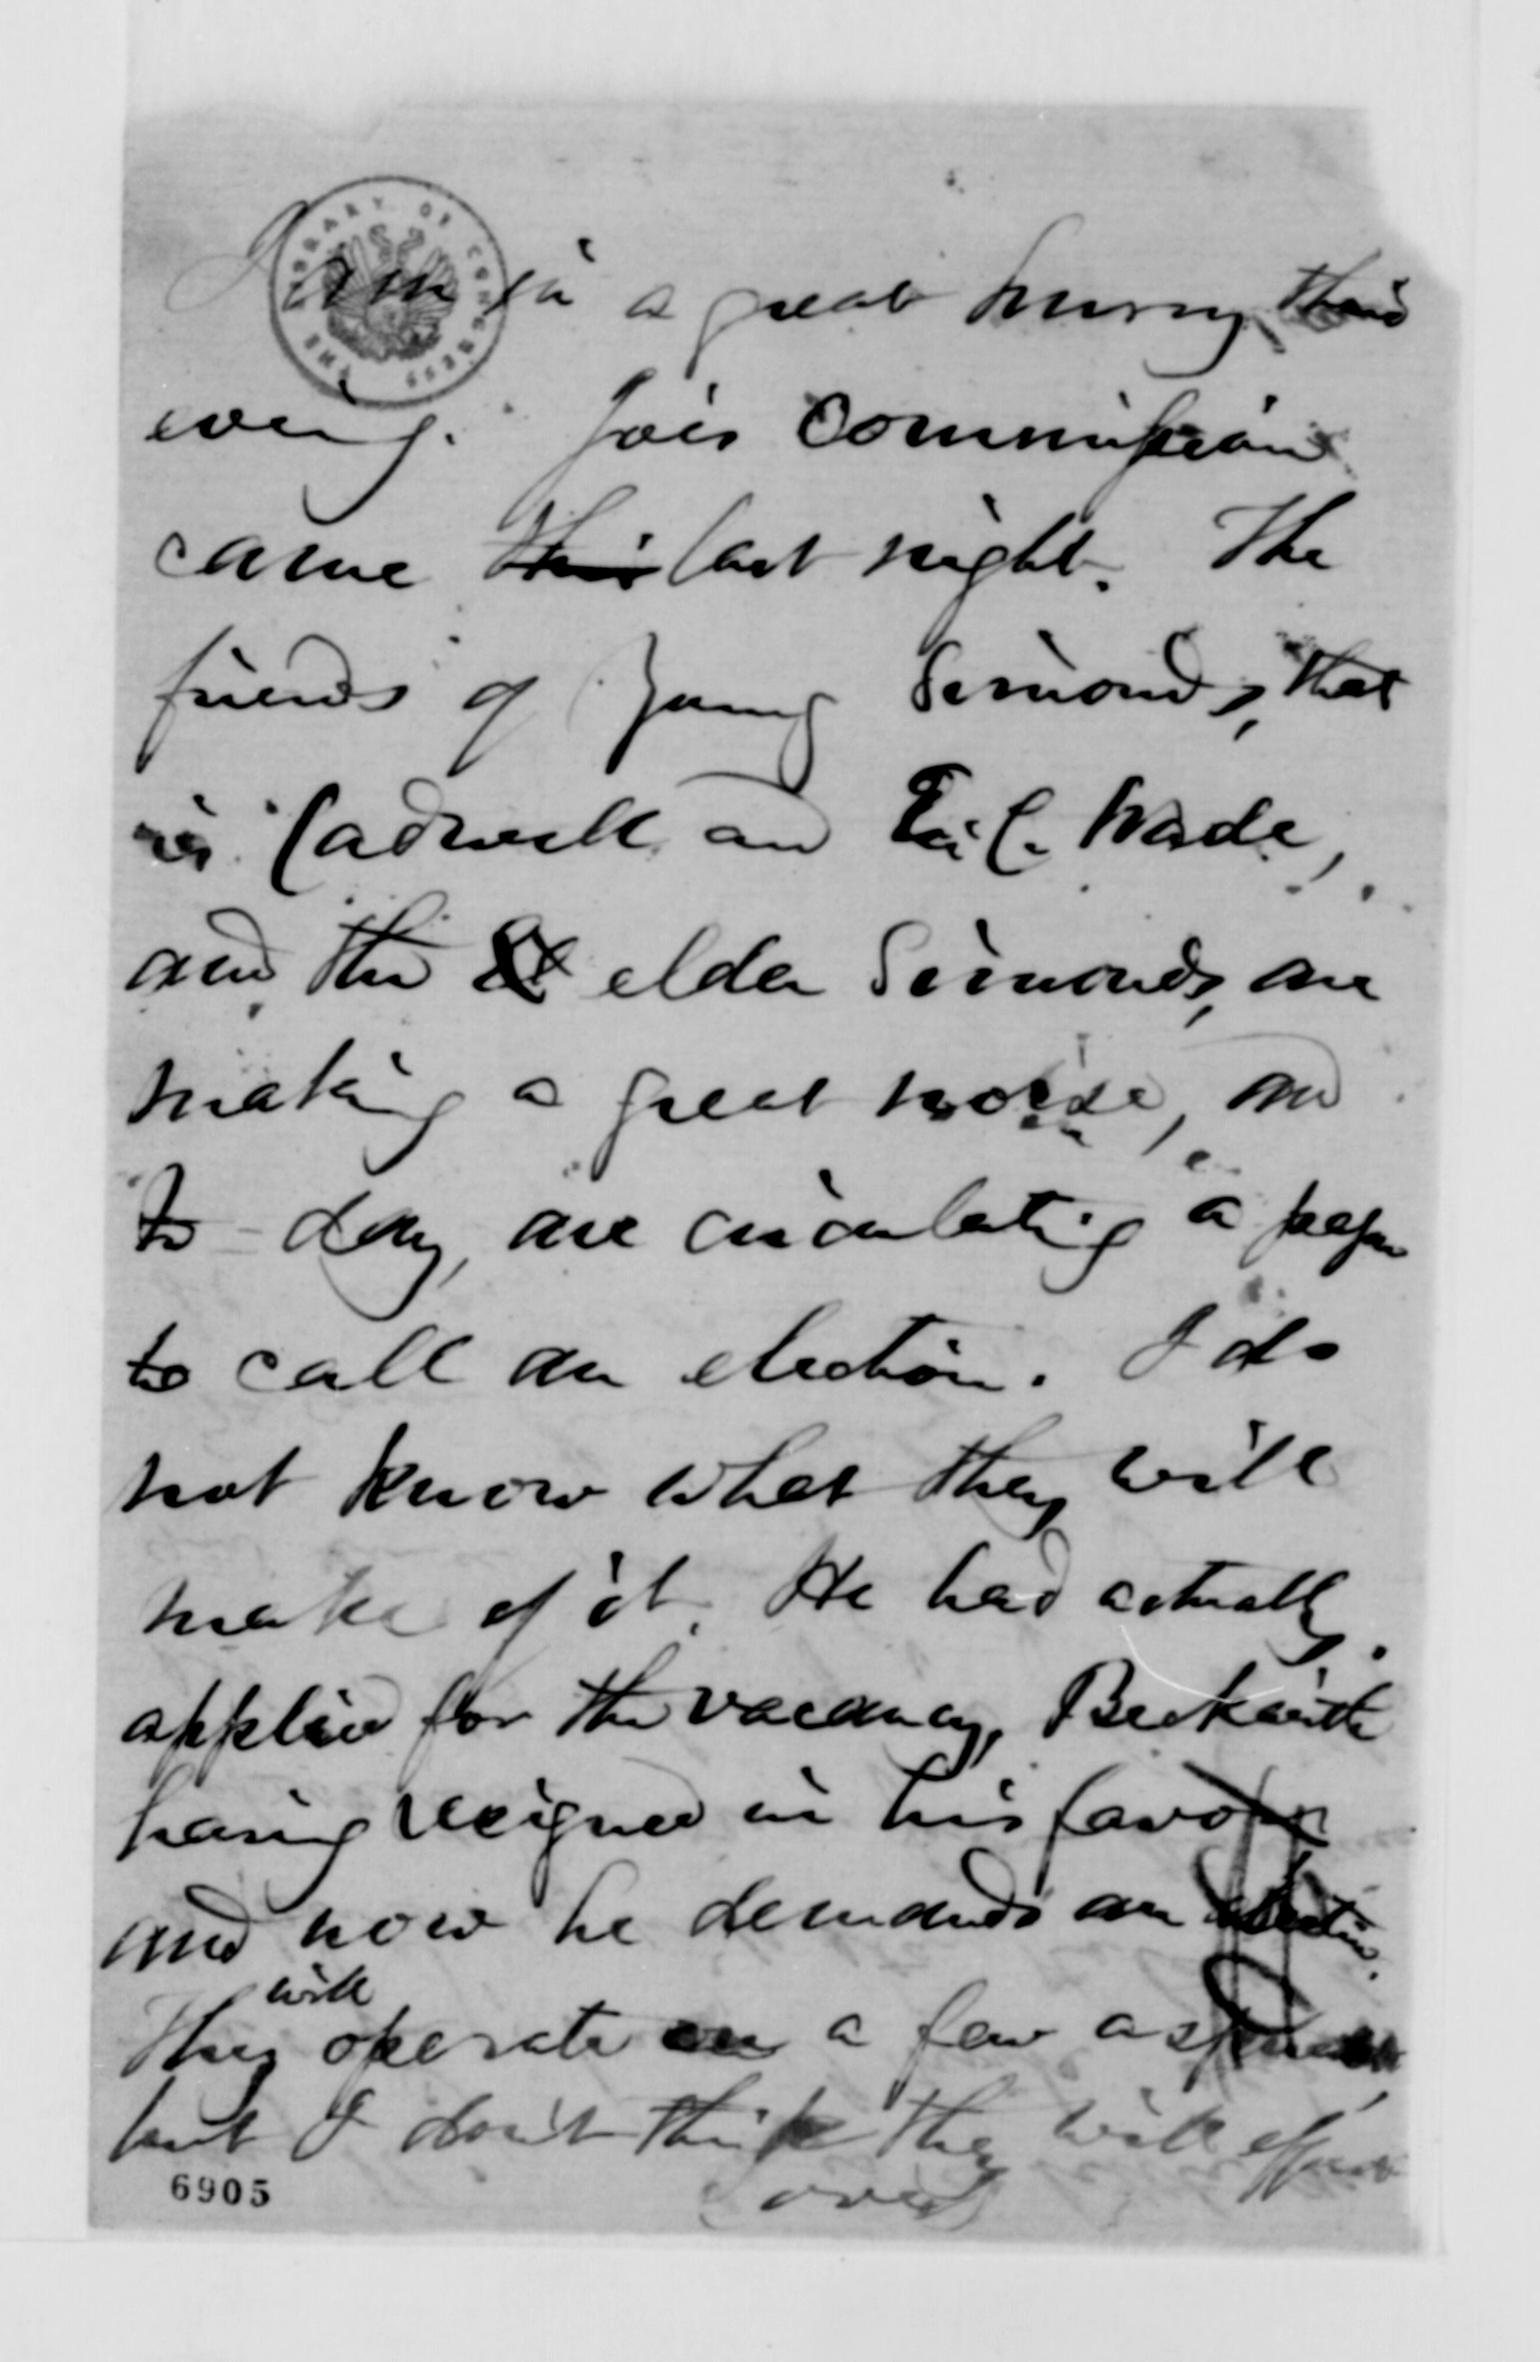 I am in a great hurry this
evening. Joes Commission
came this last night. The
friends of young Simonds, that
is Cadwell and E. C. Wade,
and the El elder Simonds, are
making a great noise, and
to-day, are circulating a paper
to call an election. I do
not know what they will
make of it. He had actually
applied for the vacancy, Beckwith
having resigned in his favor
and now he demands an election.
will
They operate on a few
but I don't think they will effect
(over)
6905
THE LIBRARY OF CONGRESS